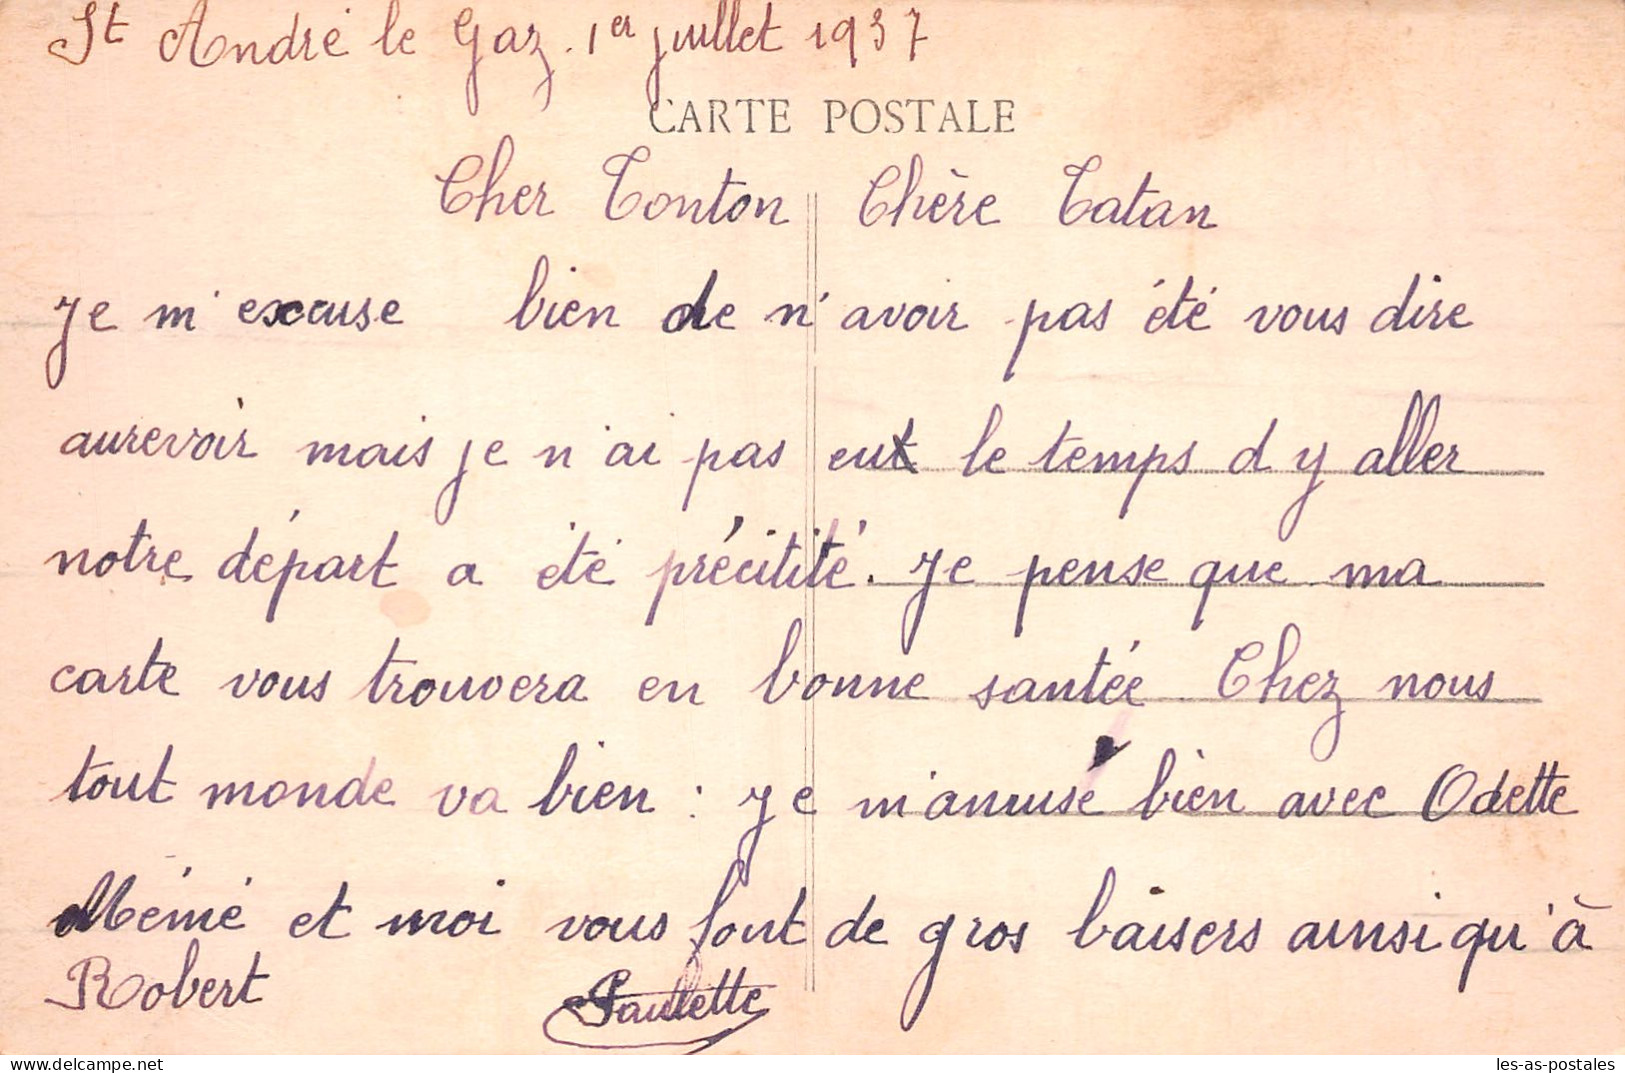 St André le Gaz. 1er juillet 1937
CARTE POSTALE
Cher Tonton Chère Tatan
Je m'excuse bien de n'avoir pas été vous dire
aurevoir mais je n'ai pas eut le temps d y aller
notre départ a été précitité. Je pense que ma
carte vous trouvera en bonne santée. Chez nous
tout monde va bien : je m'amuse bien avec Odette
Mémé et moi vous font de gros baisers ainsi qu'à
Robert Paulette
les-as-postales